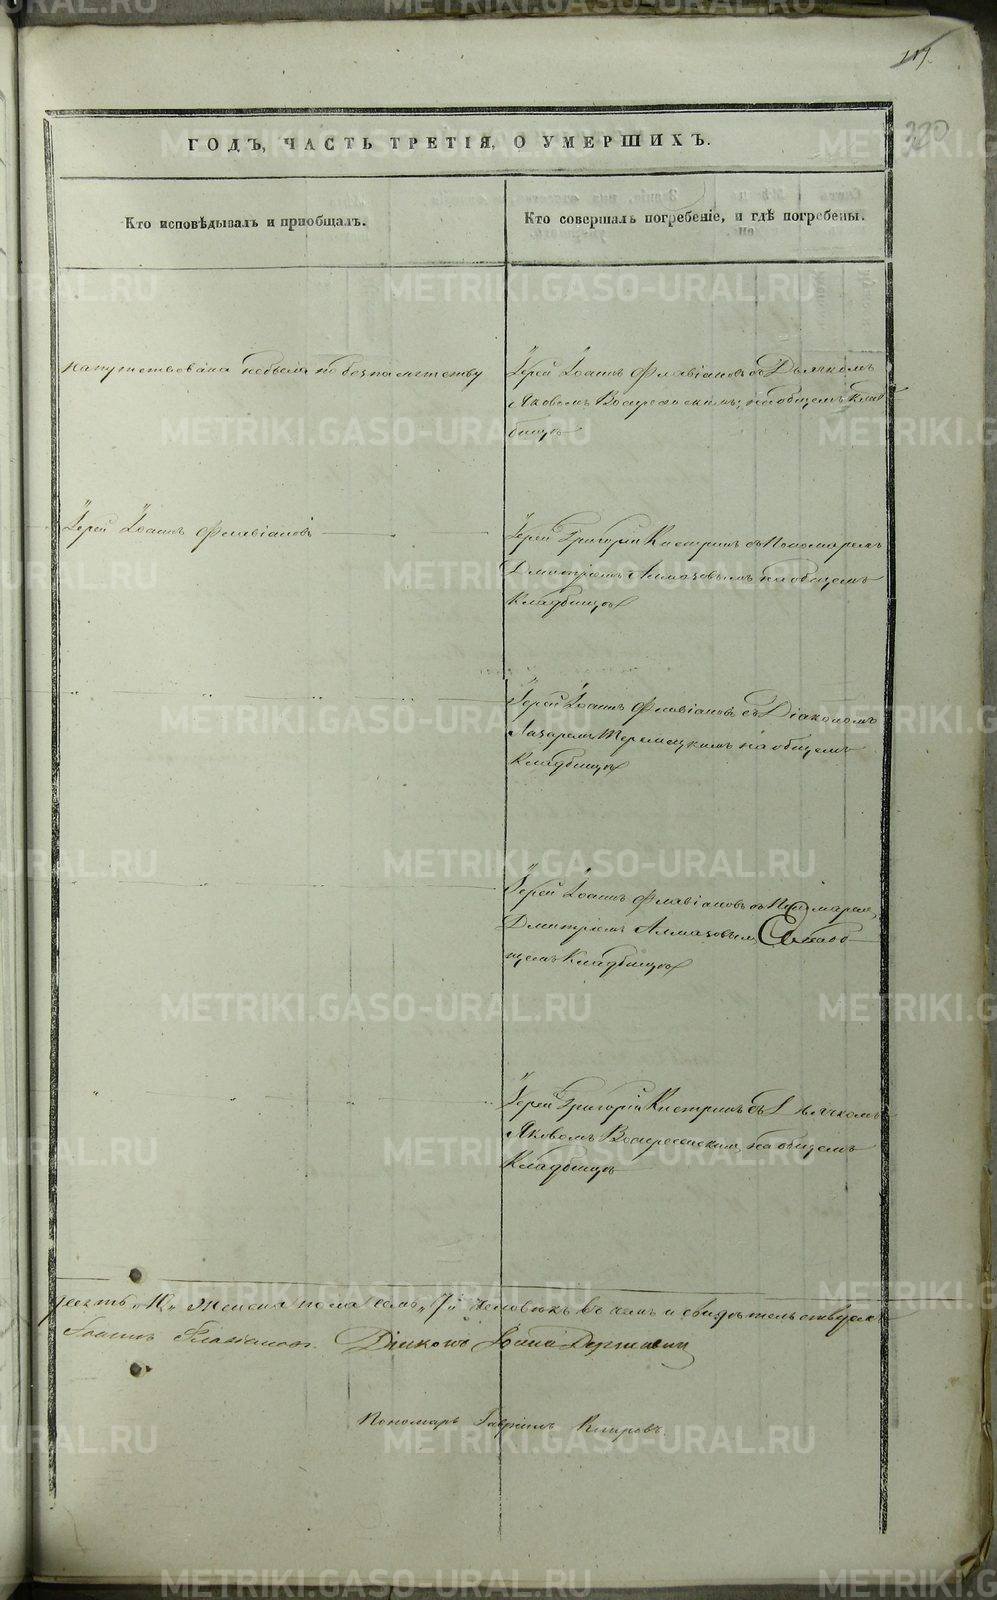 117.
330
ГОДЪ, ЧАСТЬ ТРЕТІЯ, О УМЕРШИХЪ.
Кто исповѣдывалъ и пріобщалъ.
Кто совершалъ погребеніе, и гдѣ погребены.
напутствована небыла по безпамятству
Іерей Іоаннъ Флавіановъ съ Дьячкомъ
Яковомъ Воскресенскимъ, на общемъ клад-
бищѣ
Іерей Іоаннъ Флавіановъ
Іерей Григорій Кистринъ съ Пономаремъ
Дмитріемъ Алмазовымъ на общемъ
Кладбищѣ
Іерей Іоаннъ Флавіановъ съ Діакономъ
Лазаремъ на общемъ
Кладбищѣ
Іерей Іоаннъ Флавіановъ съ Пономаремъ
Дмитріемъ Алмазовымъ на об-
щемъ Кладбищѣ
Іерей Григорій Кистринъ съ Дьячкомъ
Яковомъ Воскресенскимъ на общемъ
Кладбищѣ
женска пола семь „7“ человѣкъ въ чемъ и свидѣтельствуемъ
Іоаннъ Флавіановъ. Діаконъ
Пономарь Гавріилъ
METRIKI.GASO-URAL.RU